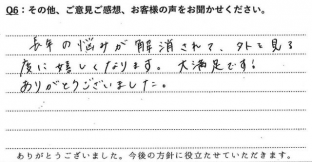 Q6：その他、ご意見ご感想、お客様の声をお聞かせください。
長年の悩みが解消されて、外を見る
度に嬉しくなります。大満足です!
ありがとうございました。
ありがとうございました。今後の方針に役立たせていただきます。